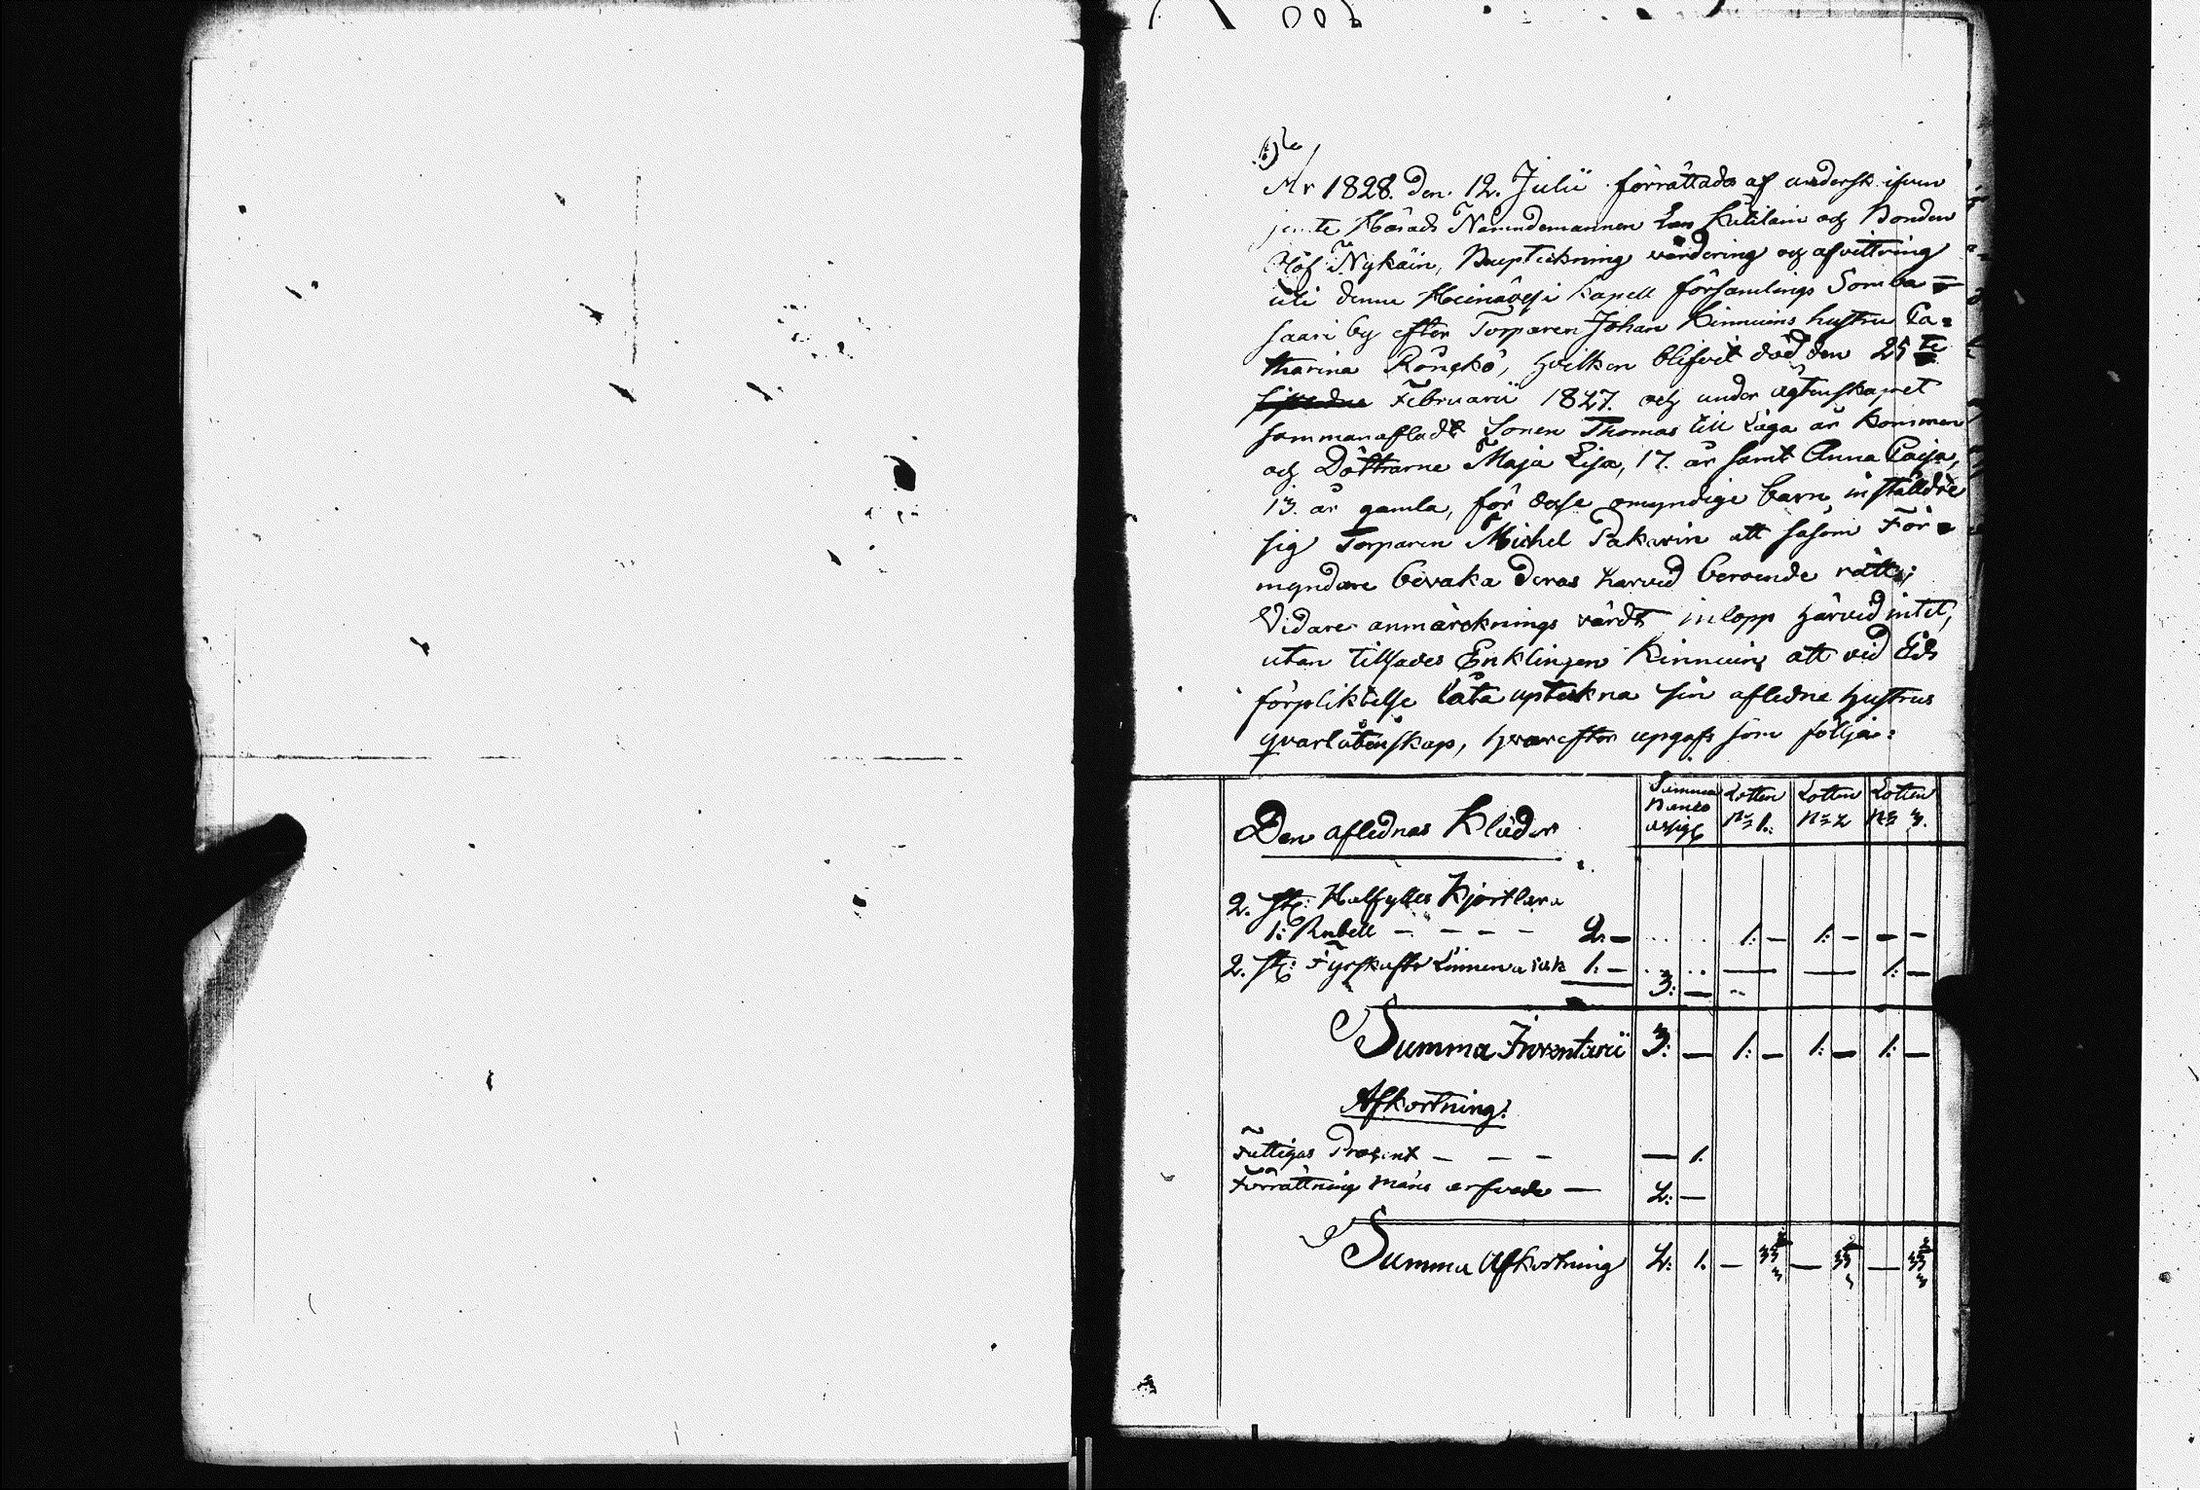 År 1828. den 12. Julii förrättades af undersk ifven
jemte Härads Nämndemannen Lars Kutilain och Bonden
Olof Nykäin, Bouptekning värdering og afvittring
uti denne Heinävesi Kapell församlings Somba=
saari by efter Torparen Johan Kinnuins hustru Ca=
tharina Rönckö, hvilken blifvit död den 25 te
Februarii 1827. och under ägtenskapet
sammanafladt Sonen Thomas till Laga år Kommen
och Döttrarne Maja Lisa, 17. år samt Anna Caisa,
13. år gamla, för dese omyndige barn, instälde
sig Torparen Michel Pakarin att såsom För=
myndare bevaka deras harvid beroende rätt;
Vidare anmärcknings värdt inlopp härvid intet,
utan tillsades Enklingen Kinnuin att vid Eds
förpliktelse låta uptekna sin aflidne hustrus
qvarlåtenskap, hvarefter upgafs som följer:
Den aflednas Kläder
Summa Banco assig
Lotten No 1.
Lotten No 2
Lotten No 3.
2. st: Halfylles Kjortlar a
1: Rubell — — — — 2: — 1: — 1: — — —
2. st: Fyrskafts Linnen a 1: — — — 1: —
3: —
Summa Inventarii 3: — 1: — 1: — 1: —
Afkortning:
Fattigas Procent — — — — 1.
Förrättnings mäns arfvode — 2: —
Summa Afkortning 2: 1. — 33 2/3 — 33 2/3 — 33 2/3